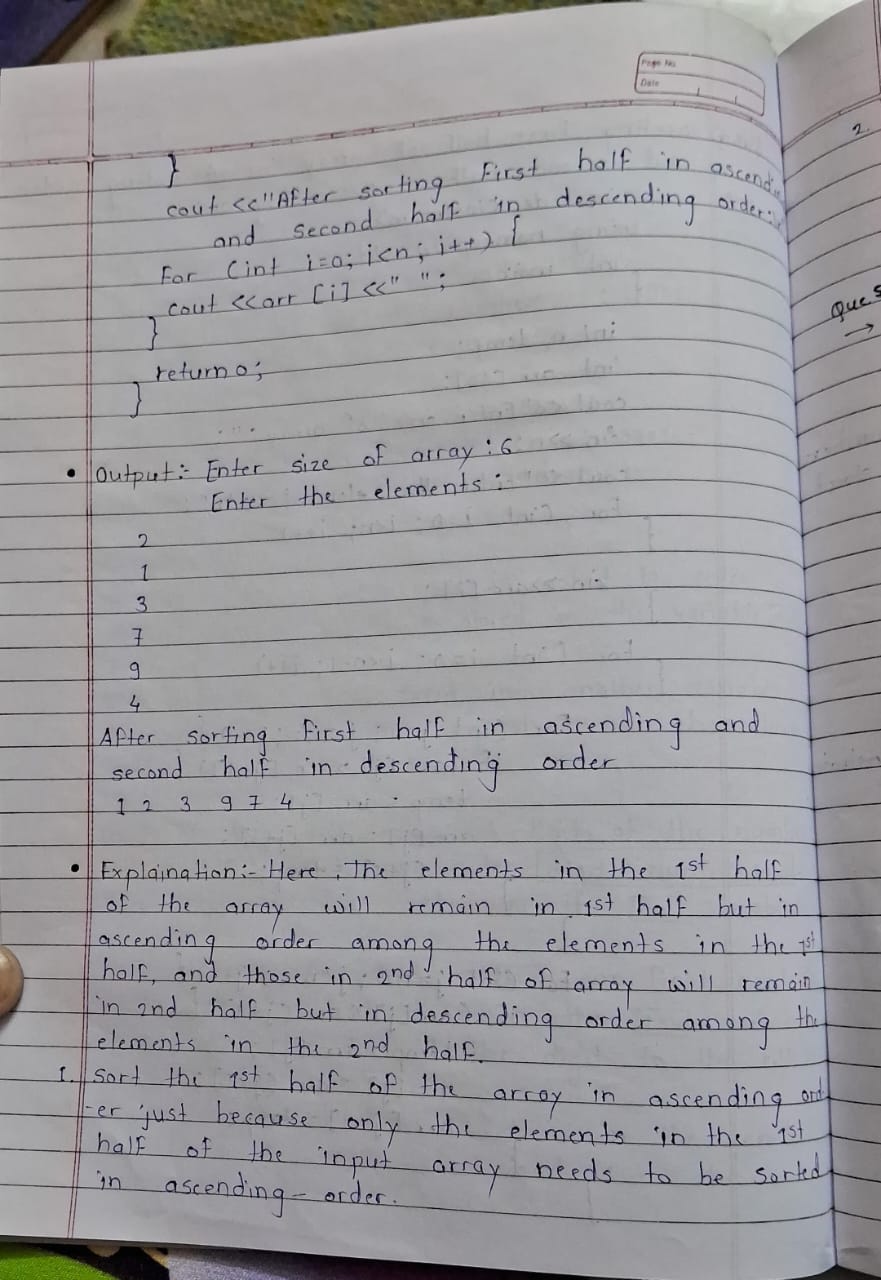 Page No
Date
}
cout <<"After sorting First half in ascend
and second half in descending order:
For (int i=0; i<n; i++) {
cout <<arr [i] <<" ";
}
return 0;
}
• Output:- Enter size of array : 6
Enter the elements :
2
1
3
7
9
4
After sorting First half in ascending and
second half in descending order
1 2 3 9 7 4
• Explaination:- Here, The elements in the 1st half
of the array will remain in 1st half but in
ascending order among the elements in the 1st
half, and those in 2nd half of array will remain
in 2nd half but in descending order among the
elements in the 2nd half.
1. Sort the 1st half of the array in ascending ord
-er just because only the elements in the 1st
half of the input array needs to be sorted
in ascending-order.
2.
Ques
→